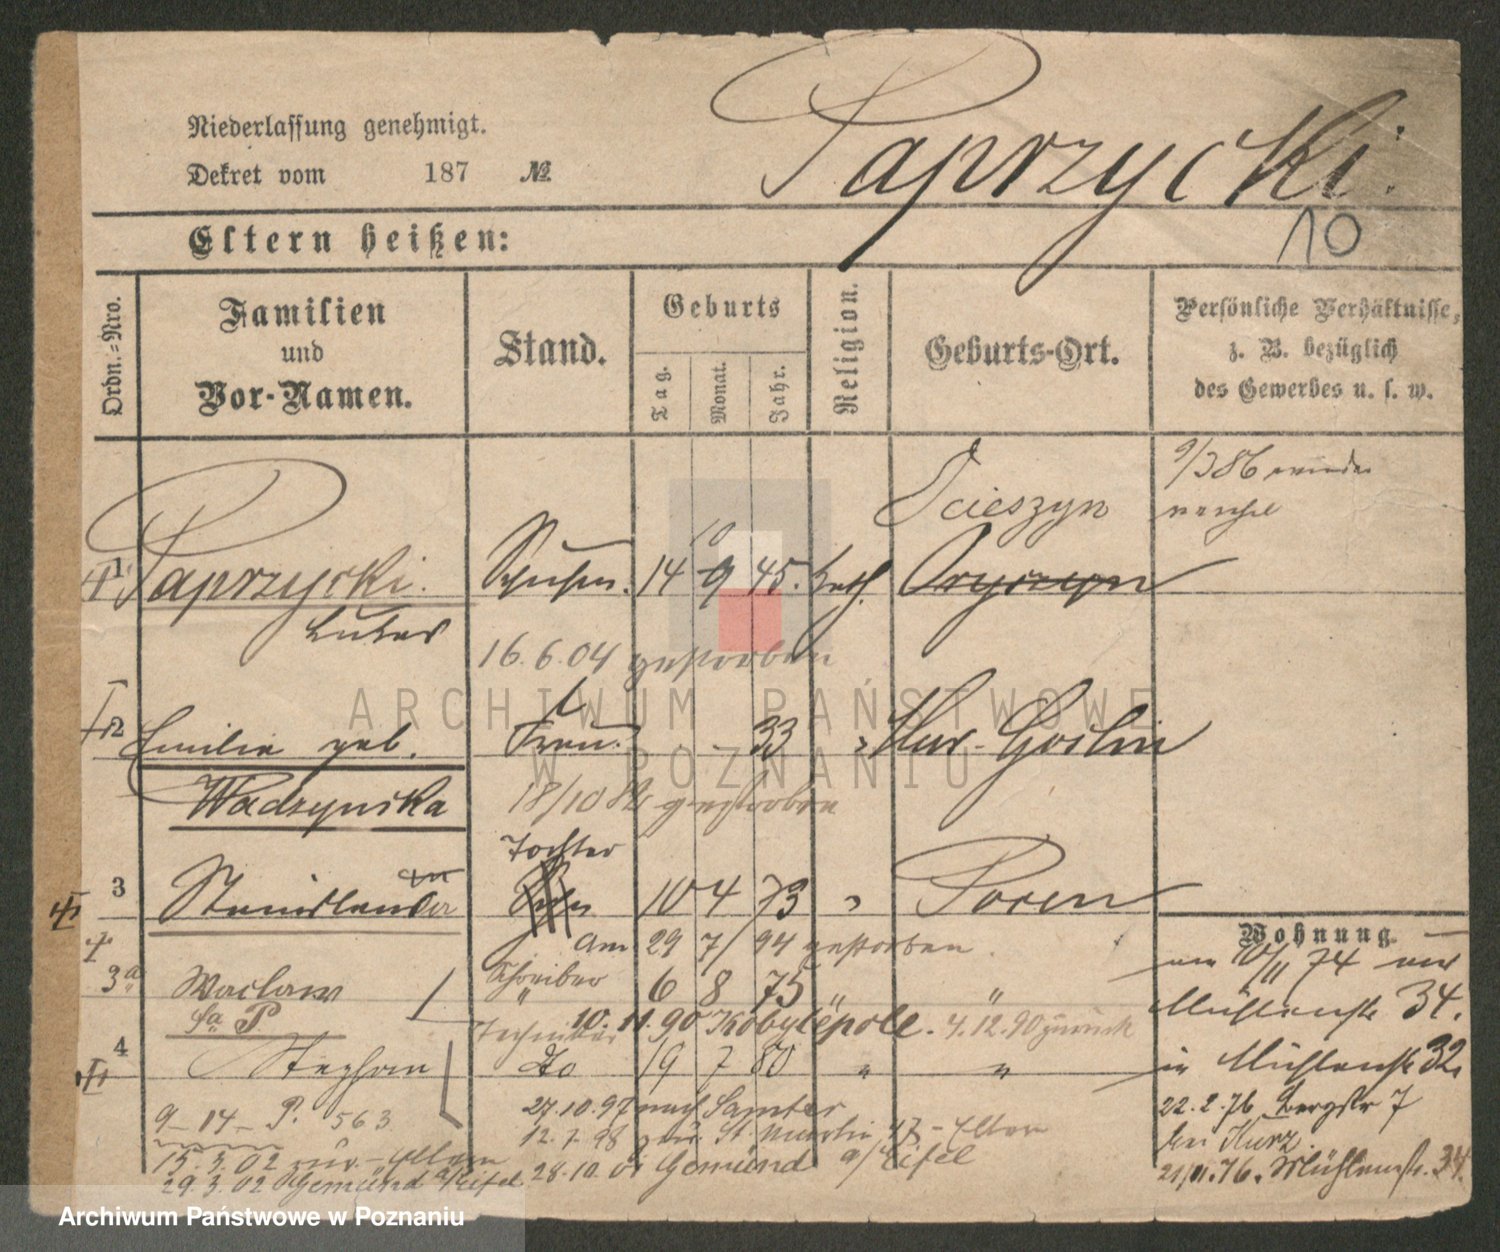 Paprzycki.
10
Niederlassung genehmigt.
Dekret vom 187 №
Eltern heißen:
Ordn.-Nro.
Familien
und
Vor-Namen.
Stand.
Geburts
Tag.
Monat.
Jahr.
Religion.
Geburts-Ort.
Persönliche Verhältnisse,
z. B. bezüglich
des Gewerbes u. s. w.
9/3 86 wieder
Ocieszyn
1 Paprzycki. 14 9 45. kath.
10
Lukas
16.6.04 gestorben
2 Emilie geb. Frau. 33 " Mur-Goslin
Wadzynska
18/10 gestorben
Tochter
3 10 4 73 " Posen
am 29 7/94 gestorben.
Wohnung.
3a Waclaw Schreiber 6 8 75 " "
10/11 74
Mühlenstr 34.
Sa P
Techniker 10.11.90 Kobylepole. 4.12.90 zurück
4 Stephan do 19 7 80 " "
in Mühlenstr 32.
9-14- P. 563
27.10.97 nach Samter
22.2.76 Bergstr 7
12.7.98 zur. St. Martin 47 - Eltern
bei Kurz.
15.3.02 zur. - Eltern
28.10.01 Gemünd a/Eifel
21/11.76. Mühlenstr. 34.
29.3.02 Gemünd a/Eifel
ARCHIWUM PAŃSTWOWE
W POZNANIU
Archiwum Państwowe w Poznaniu